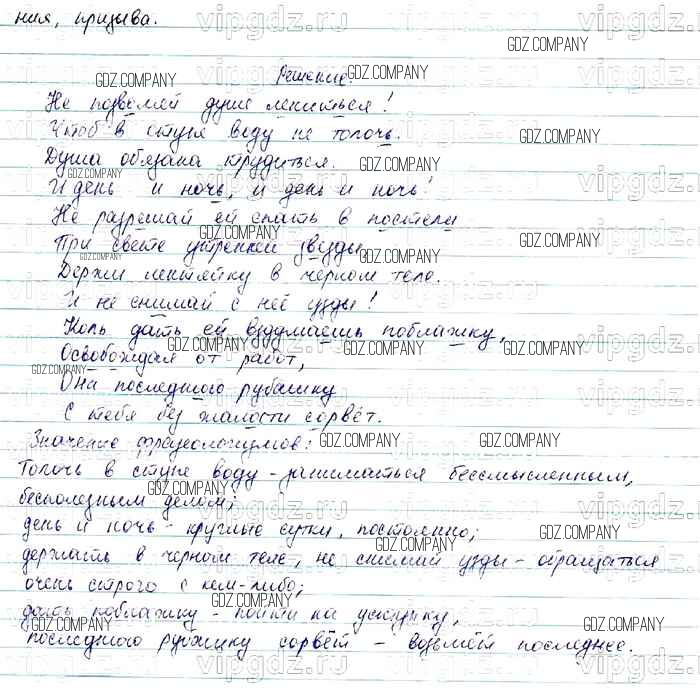 ния, призыва.
Решение.
Не позволяй душе лениться!
Чтоб в ступе воду не толочь.
Душа обязана трудиться.
И день и ночь, и день и ночь!
Не разрешай ей спать в постели
При свете утренней звезды
Держи лентяйку в чёрном теле.
И не снимай с неё узды!
Коль дать ей вздумаешь поблажку,
Освобождая от работ,
Она последнюю рубашку
С тебя без жалости сорвёт.
Значение фразеологизмов:
Толочь в ступе воду - заниматься бессмысленным,
бесполезным делом;
день и ночь - круглые сутки, постоянно;
держать в чёрном теле, не снимай узды - обращаться
очень строго с кем-либо;
дать поблажку - пойти на уступку,
последнюю рубашку сорвёт - возьмёт последнее.